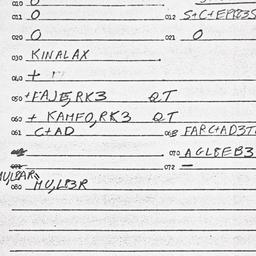 010 O
011 O 012 S+C+EPR3S
020 O 021 O
030 KINALAX
040 +
050 +FAJE,RK3 QT
060 + KAMFO,RK3 QT
061 C+AD 068 FARC+AD3T
070 AGLEEB3
072 —
080 MU,LB3R